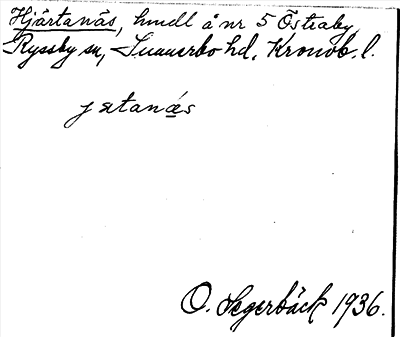 Hjärtanäs, hmdl å nr 5 Östraby,
Ryssby sn, Sunnerbo hd, Kronob. l.
jætanás
O. Segerbäck 1936.